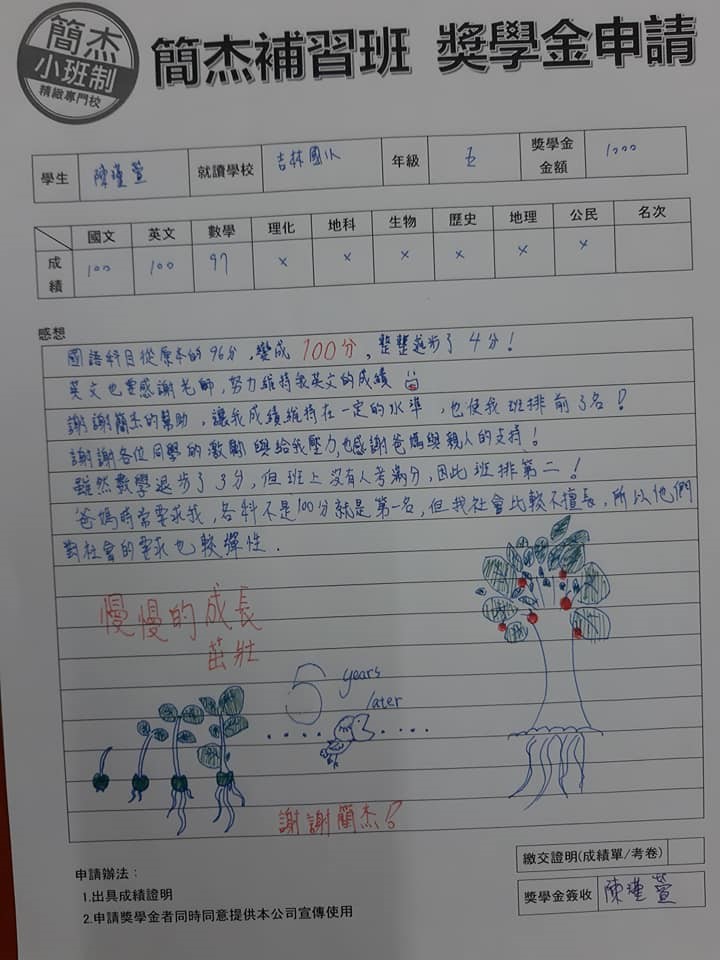 簡杰
小班制
精緻專門校
簡杰補習班 獎學金申請
學生 陳瑾萱 就讀學校 吉林國小 年級 五 獎學金金額 1000
國文 英文 數學 理化 地科 生物 歷史 地理 公民 名次
成績 100 100 97 x x x x x x
感想
國語科目從原本的96分,變成100分,整整進步了4分!
英文也要感謝老師,努力維持我英文的成績
謝謝簡杰的幫助,讓我成績維持在一定的水準,也使我班排前3名!
謝謝各位同學的激勵與給我壓力,也感謝爸媽與親人的支持!
雖然數學退步了3分,但班上沒有人考滿分,因此班排第二!
爸媽時常要求我,各科不是100分就是第一名,但我社會比較不擅長,所以他們
對社會的要求也較彈性.
慢慢的成長
茁壯
5 years
later
謝謝簡杰!
繳交證明(成績單/考卷)
申請辦法:
1.出具成績證明
2.申請獎學金者同時同意提供本公司宣傳使用
獎學金簽收 陳瑾萱